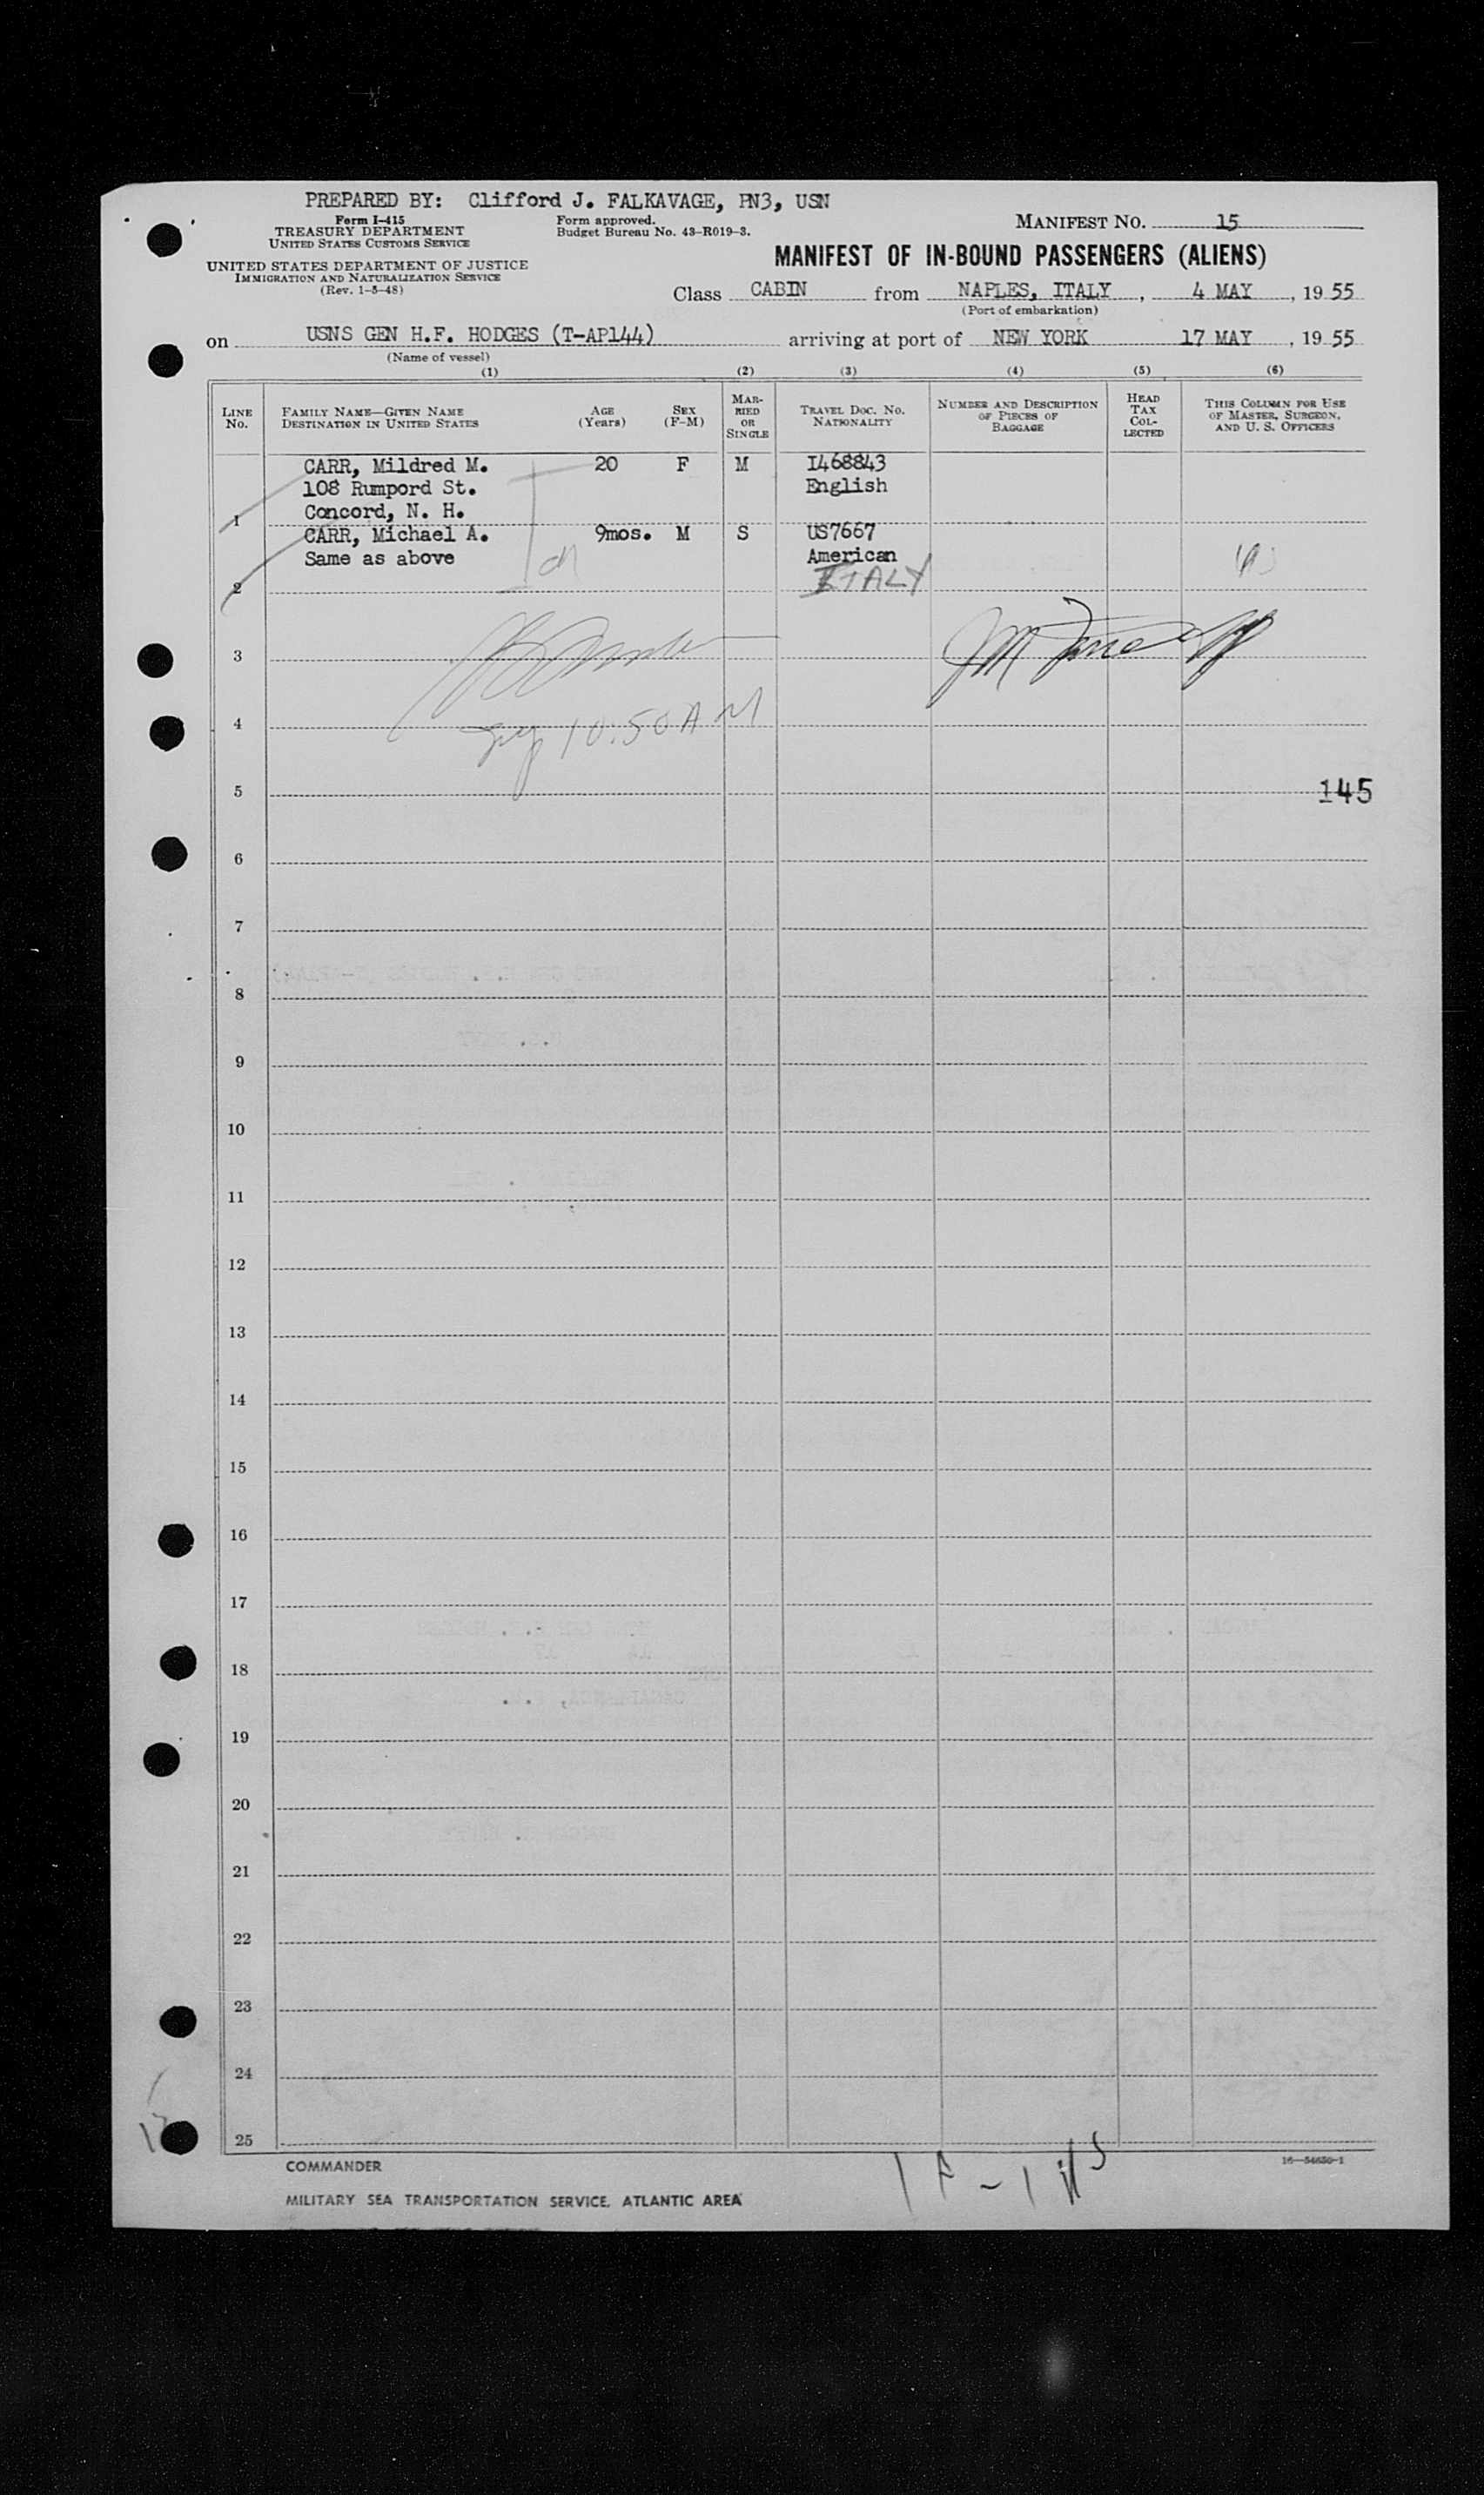 PREPARED BY: Clifford J. FALKAVAGE, PN3, USN
Form I-415
TREASURY DEPARTMENT
UNITED STATES CUSTOMS SERVICE
Form approved.
Budget Bureau No. 43-R019-3.
MANIFEST NO. 15
UNITED STATES DEPARTMENT OF JUSTICE
IMMIGRATION AND NATURALIZATION SERVICE
(Rev. 1-5-48)
MANIFEST OF IN-BOUND PASSENGERS (ALIENS)
Class CABIN from NAPLES, ITALY, 4 MAY, 1955
(Port of embarkation)
on USNS GEN H.F. HODGES (T-AP144) arriving at port of NEW YORK 17 MAY, 1955
(Name of vessel)
(1) (2) (3) (4) (5) (6)
LINE No.
FAMILY NAME—GIVEN NAME
DESTINATION IN UNITED STATES
AGE (Years)
SEX (F-M)
MARRIED OR SINGLE
TRAVEL DOC. NO. NATIONALITY
NUMBER AND DESCRIPTION OF PIECES OF BAGGAGE
HEAD TAX COLLECTED
THIS COLUMN FOR USE OF MASTER, SURGEON, AND U. S. OFFICERS
CARR, Mildred M. 20 F M I468843
108 Rumpord St. English
1 Concord, N. H.
CARR, Michael A. 9mos. M S US7667
Same as above American
2 ITALY
3
4 10:50 AM
5 145
6
7
8
9
10
11
12
13
14
15
16
17
18
19
20
21
22
23
24
25
COMMANDER
MILITARY SEA TRANSPORTATION SERVICE, ATLANTIC AREA
16—54650-1